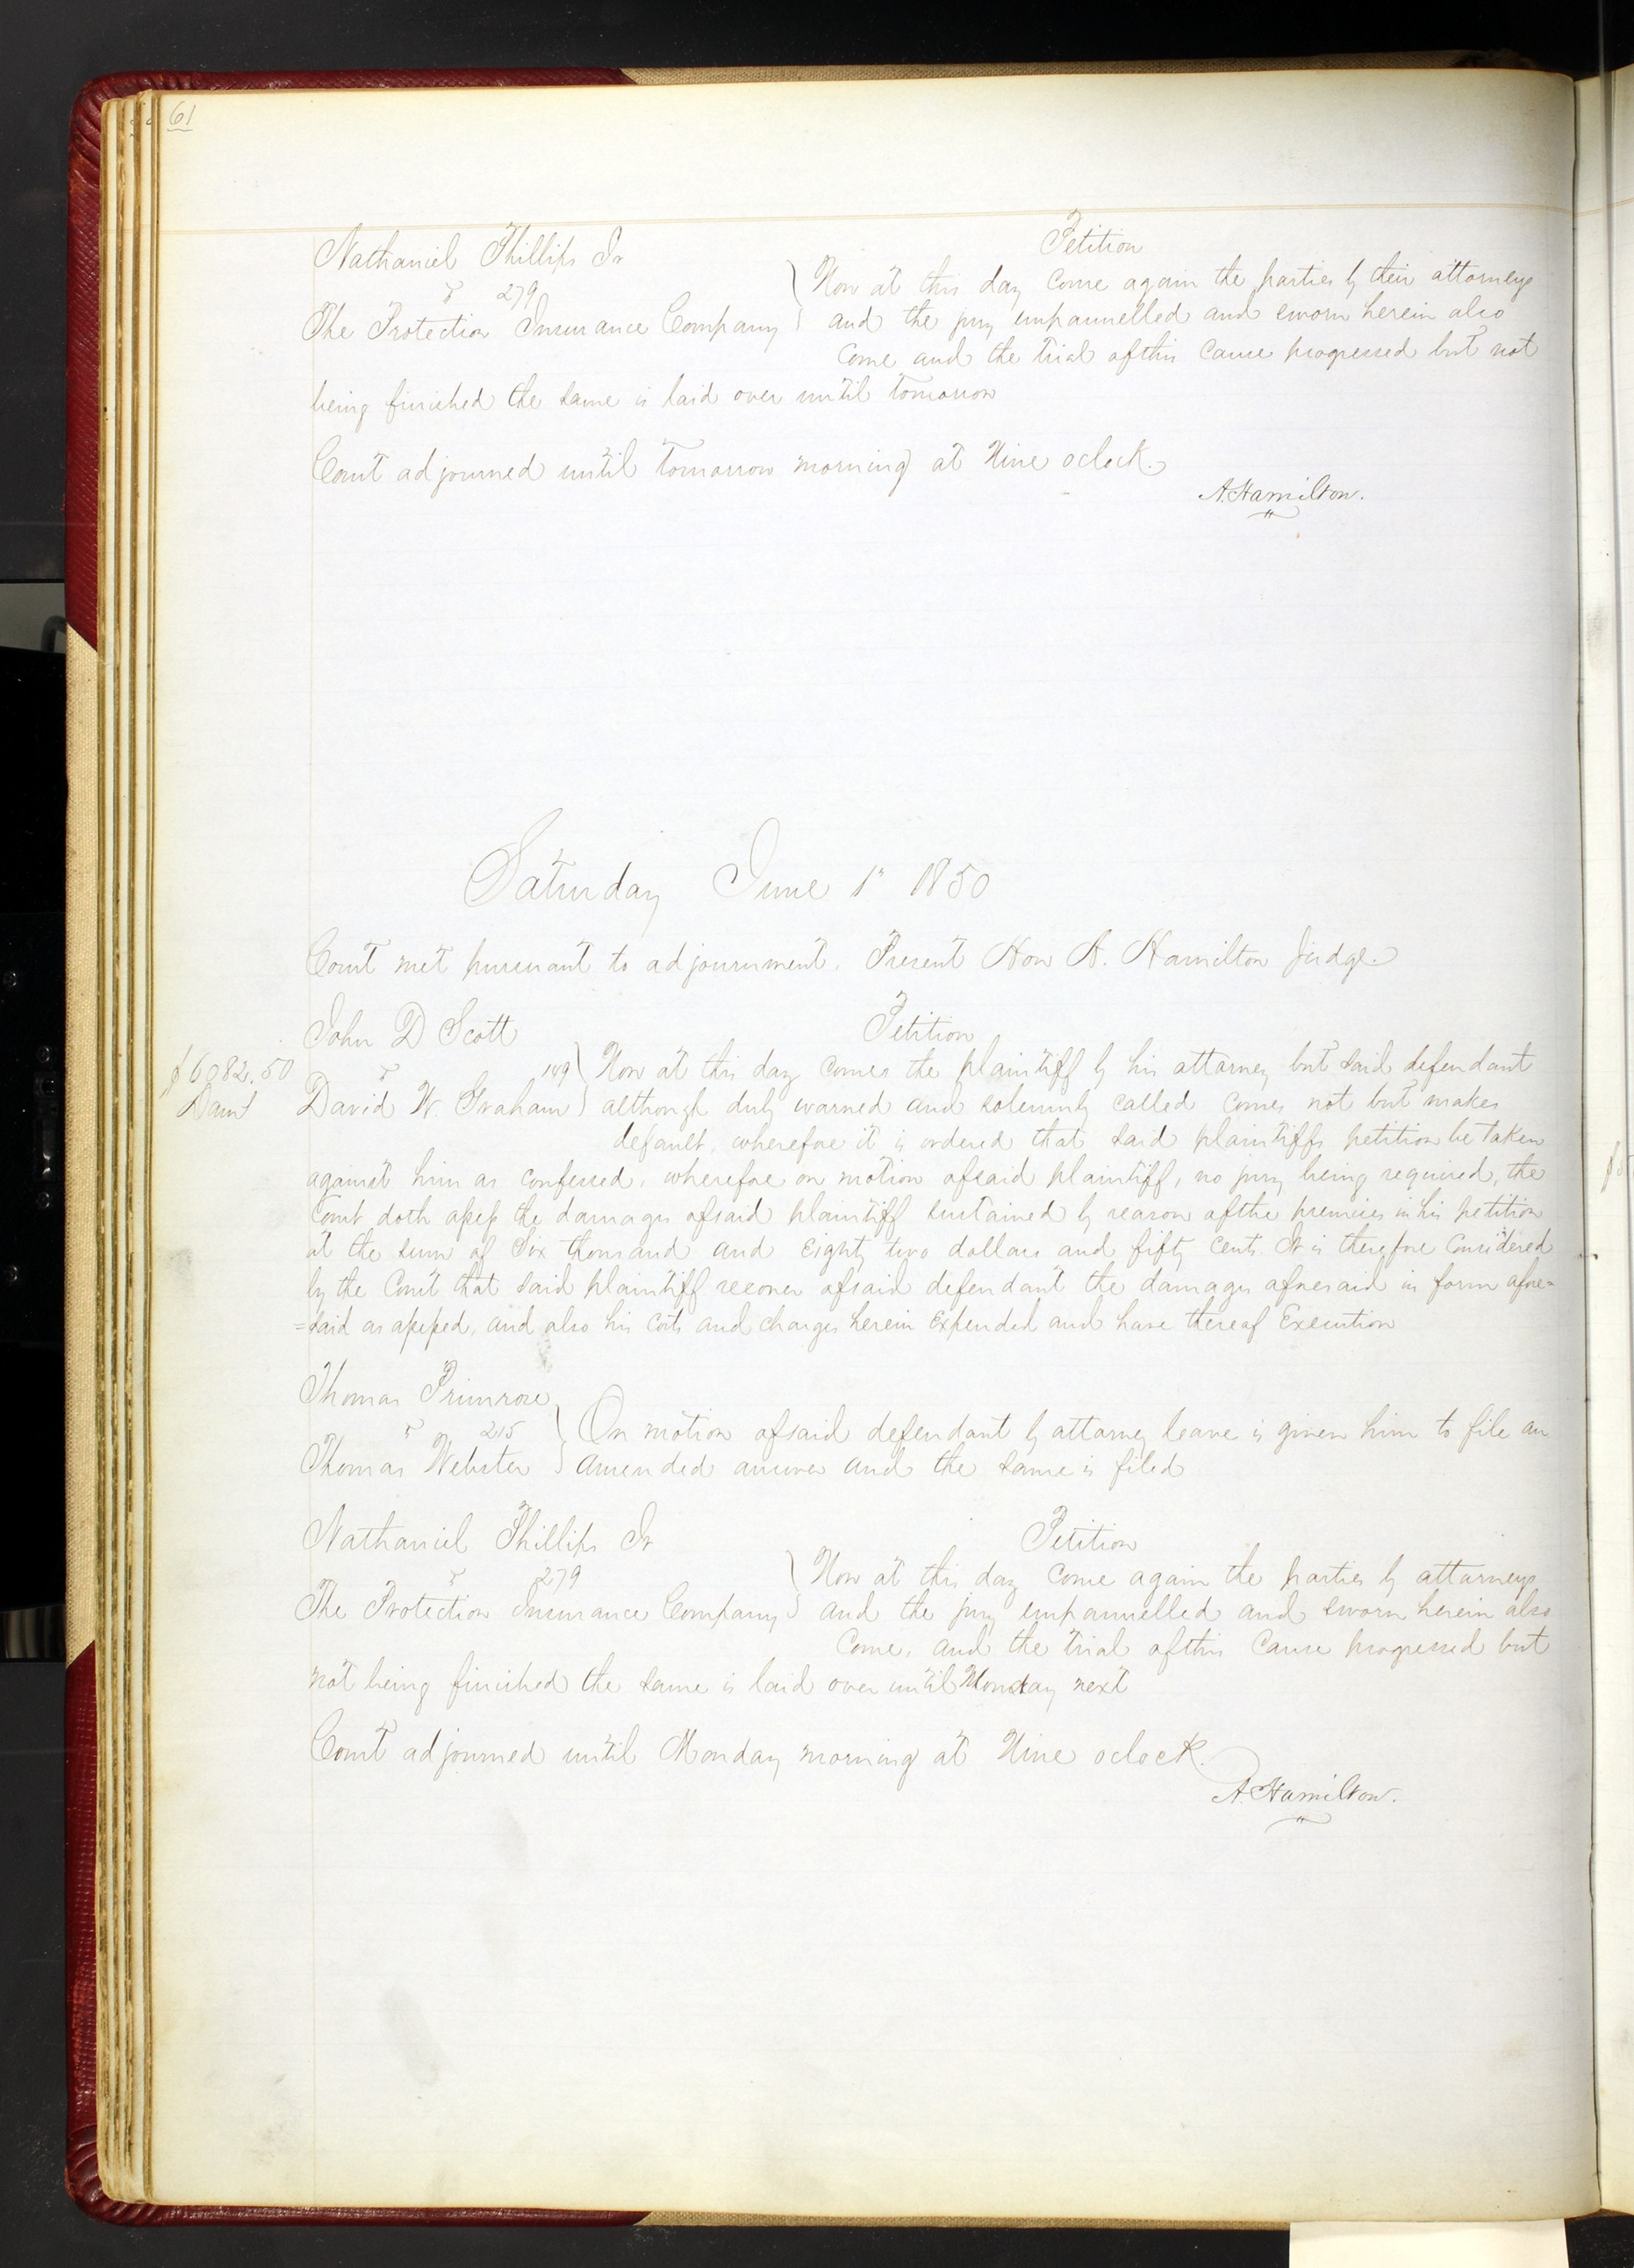 61
Nathaniel Phillips Jr
Petition
v 279
Now at this day come again the parties by their attorneys
The Protection Insurance Company
and the jury empannelled and sworn herein also
come and the trial of this cause progressed but not
being finished the same is laid over until tomorrow
Court adjourned until tomorrow morning at Nine oclock.
A. Hamilton.
Saturday June 1" 1850
Court met pursuant to adjournment. Present Hon A. Hamilton Judge.
John D Scott
Petition
$6082.50
v 149
Now at this day comes the plaintiff by his attorney but said defendant
David W. Graham
although duly warned and solemnly called comes not but makes
default, wherefore it is ordered that said plaintiffs petition be taken
against him as confessed, wherefore on motion of said plaintiff, no jury being required, the
Court doth assess the damages of said plaintiff sustained by reason of the premises in his petition
at the sum of Six thousand and eighty two dollars and fifty cents. It is therefore Considered
by the Court that said plaintiff recover of said defendant the damages aforesaid in form afore=
=said as assessed, and also his costs and charges herein Expended and have thereof Execution
Thomas Primrose
v 215
On motion of said defendant by attorney leave is given him to file an
Thomas Webster
amended answer and the same is filed
Nathaniel Phillips Jr
Petition
v 279
Now at this day come again the parties by attorneys
The Protection Insurance Company
and the jury empannelled and sworn herein also
come, and the trial of this cause progressed but
not being finished the same is laid over until Monday next
Court adjourned until Monday morning at Nine oclock.
A. Hamilton.